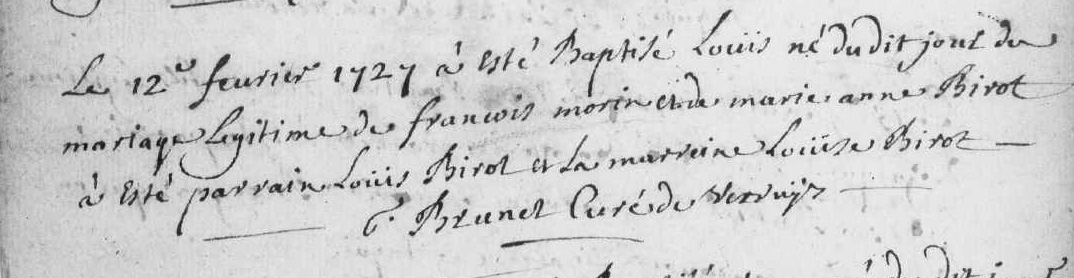 Le 12e feurier 1727 à esté Baptisé Loüis né dudit jour du
mariage Legitime de francois morin et de marie anne Birot
à esté parrain Loüis Birot et La marreine Loüise Birot
Brunet Curé de Verruye